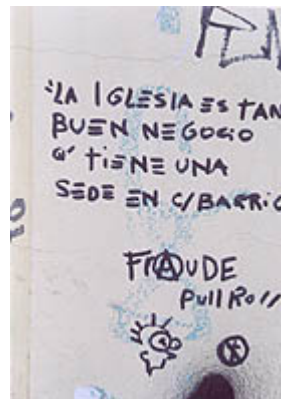 "LA IGLESIA ES TAN
BUEN NEGOCIO
Q' TIENE UNA
SEDE EN C/BARRIO
FRAUDE